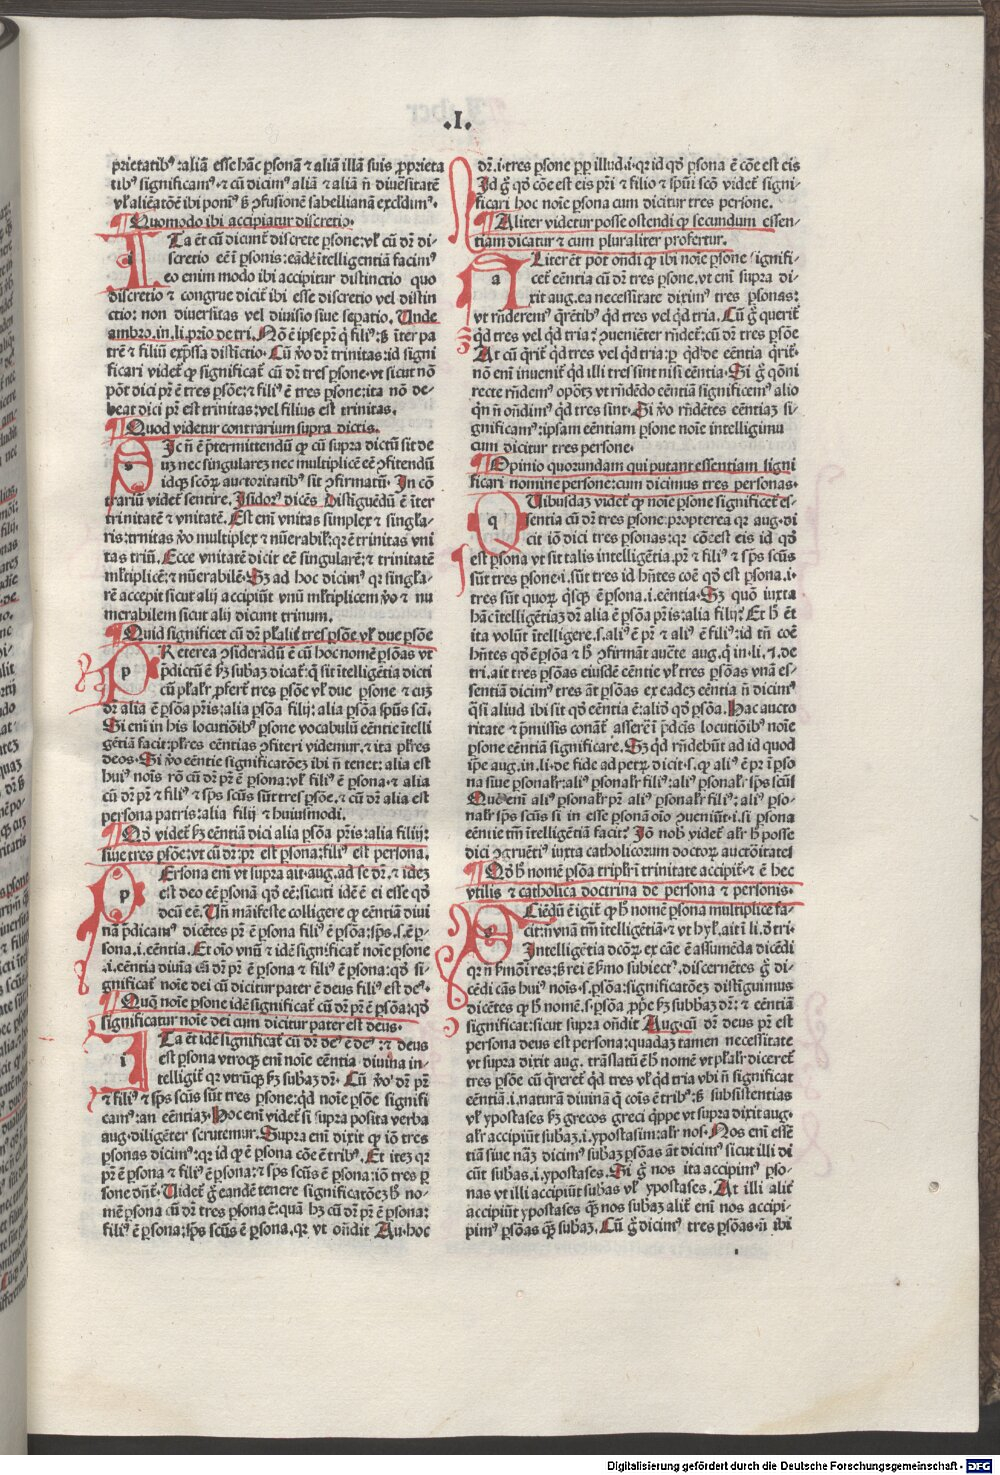 .I.
prietatibꝰ:aliã esse hãc ꝑsonã ⁊ aliã illã suis ꝓprieta
tibꝰ significamꝰ.⁊ cũ dicimꝰ aliã ⁊ aliã ñ diuersitatẽ
vl̓ alieⁿatõẽ ibi ponimꝰ ꝫ ꝯfusionẽ sabellianã excludimꝰ.
¶Quomodo ibi accipiatur discretio.
ITa ẽt cũ dicunt̃ discrete ꝑsone:vl̓ cũ dr̃ di-
scretio eẽ ĩ ꝑsonis:eãdẽ ĩtelligentiã facimꝰ
eo enim modo ibi accipitur distinctio quo
discretio ⁊ congrue dicit̃ ibi esse discretio vel distin
ctio: non diuersitas vel diuisio siue sepatio. Unde
ambro.in.li.prio de tri. Nõ ẽ ipse pr̃ q̓ filiꝰ:ꝫ ĩter pa
trẽ ⁊ filiũ exp̃ssa distĩctio. Cũ ṽo dr̃ trinitas:id signi
ficari videt̃ ꝙ significat̃ cũ dr̃ tres ꝑsone.vt sicut nõ
põt dici pr̃ ẽ tres ꝑsõe:⁊ filiꝰ ẽ tres ꝑsone:ita nõ de-
beat dici pr̃ est trinitas:vel filius est trinitas.
¶Quod videtur contrarium supra dictis.
SIc ñ ẽ p̃termittendũ ꝙ cũ supra dictũ sit de
uz nec singularez nec multiplicẽ eẽ ꝯfitendũ
idqꝫ scõꝝ auctoritatibꝰ sit ꝯfirmatũ. In cõ
trariũ videt̃ sentire. Isidorꝰ dicẽs Distiguẽdũ ẽ ĩter
trinitatẽ ⁊ vnitatẽ. Est eni vnitas simplex ⁊ singl̓a-
ris:trnitas ṽo multiplex ⁊ nũerabil̓:qr̃ ẽ trinitas vni
tas triũ. Ecce vnitatẽ dicit eẽ singularẽ:⁊ trinitatẽ
ml̓tiplicẽ:⁊ nũerabilẽ. Sꝫ ad hoc dicimꝰ qr̃ singl̓a-
rẽ accepit sicut alij accipiũt vnũ ml̓tiplicem ṽo ⁊ nu
merabilem sicut alij dicunt trinum.
¶Quid significet cũ dr̃ pl̓alit̃ tres ꝑsõe vl̓ due ꝑsõe
PReterea ꝯsiderãdũ ẽ cũ hoc nomẽ ꝑsõas vt
p̃dictũ ẽ ẜꝫ subaz dicat̃:q̃ sit ĩtelligẽtia dicti
cũ pl̓alr̃ ꝓfert̃ tres ꝑsõe vl̓ due ꝑsone ⁊ cuz
dr̃ alia ẽ ꝑsõa pr̃is:alia ꝑsõa filij: alia ꝑsõa sp̃us sci.
Si eni in his locutiõibꝰ ꝑsone vocabulũ eẽntie ĩtelli
gẽtiã facit:pl̓res eẽntias ꝯfiteri videmur.⁊ ita pl̓res
deos. Si ṽo eẽntie significatõez ibi ñ tenet: alia est
huiꝰ nois rõ cũ dr̃ pr̃ ẽ ꝑsona:vl̓ filiꝰ ẽ ꝑsona.⁊ alia
cũ dr̃ pr̃ ⁊ filiꝰ ⁊ sp̃s scũs sũt tres ꝑsõe.⁊ cũ dr̃ alia est
persona patris:alia filij ⁊ huiusmodi.
¶Qõ videt̃ ẜꝫ eẽntiã dici alia ꝑsõa pr̃is:alia filij:
siue tres ꝑsõe:vt cũ dr̃: pr̃ est ꝑsona:filiꝰ est persona.
PErsona eni vt supra ait.aug.ad se dr̃.⁊ idez
est deo eẽ ꝑsonã qõ eẽ:sicuti idẽ ẽ ei esse qõ
deũ eẽ. Uñ mãifeste colligere ꝙ eẽntiã diui
nã p̃dicamꝰ dicẽtes pr̃ ẽ ꝑsona filiꝰ ẽ ꝑsõa:sp̃s.s.ẽ ꝑ-
sona.i.eẽntia. Et oĩo vnũ ⁊ idẽ significat̃ noie ꝑsone
.i.eẽntia diuina cũ dr̃ pr̃ ẽ ꝑsona ⁊ filiꝰ ẽ ꝑsona:qõ si-
gnificat̃ noie dei cũ dicitur pater ẽ deus filiꝰ est deꝰ.
¶Quõ noie ꝑsone idẽ significat̃ cũ dr̃ pr̃ ẽ ꝑsõa:qõ
significatur noie dei cum dicitur pater est deus.
ITa ẽt idẽ significat̃ cũ dr̃ deꝰ ẽ deꝰ:⁊ deus
est ꝑsona vtroqꝫ eni noie eẽntia diuina in-
telligit̃ qr̃ vtrũqꝫ ẜꝫ subaz dr̃. Cũ ṽo dr̃ pr̃
⁊ filiꝰ ⁊ sp̃s scũs sũt tres ꝑsone:qd noie ꝑsõe signifi
camꝰ:an eẽntiaz. Hoc eni videt̃ si supra posita verba
aug.diligẽter scrutemur. Supra eni dixit ꝙ iõ tres
ꝑsonas dicimꝰ:qr̃ id ꝙ ẽ ꝑsona cõe ẽ tribꝰ. Et itez qr̃
pr̃ ẽ ꝑsona ⁊ filiꝰ ẽ ꝑsona:⁊ sp̃s scũs ẽ ꝑsona:iõ tres ꝑ
sone dñt̃. Uidet̃ g̃ eandẽ tenere significatõez ꝫ no-
mẽ ꝑsona cũ dr̃ tres ꝑsona ẽ:quã hꝫ cũ dr̃ pr̃ ẽ ꝑsona:
filiꝰ ẽ ꝑsona:sp̃s scũs ẽ ꝑsona.qr̃ vt oñdit Au.hoc
dr̃.i.tres ꝑsone ꝓp illud.i.qr̃ id qõ ꝑsona ẽ cõe est eis
Id g̃ qõ cõe est eis pr̃i ⁊ filio ⁊ sp̃ui scõ videt̃ signi-
ficari hoc noie ꝑsona cum dicitur tres persone.
¶Aliter videtur posse ostendi ꝙ secundum essen-
tiam dicatur ⁊ cum pluraliter profertur.
ALiter ẽt põt oñdi ꝙ ibi noie ꝑsone significi-
cet̃ eẽntia cũ dr̃ tres ꝑsone.vt eni supra di-
xit aug.ea necessitate diximꝰ tres ꝑsonas:
vt rñderemꝰ q̃rẽtibꝰ qd tres vel qd tria. Cũ g̃ querit̃
qd tres vel qd tria: ꝯueniẽter rñdet̃: cũ dr̃ tres ꝑsõe
At cũ q̃rit̃ qd tres vel qd tria: ꝑ qd de eẽntia q̃rit̃.
nõ eni inuenit̃ qd illi tres sint nisi eẽntia. Si g̃ q̃oni
recte rñdem̃ oportz vt rñdẽdo eẽntiã significemꝰ alio
qn̄ ñ oñdimꝰ qd tres sint. Si ṽo rñdẽtes eẽntiaz si-
gnificamꝰ:ipsam eẽntiam ꝑsone noie intelligimu
cum dicitur tres persone.
¶Opinio quorundam qui putant essentiam signi
ficari nomine persone:cum dicimus tres personas.
QUibusdaz videt̃ ꝙ noie ꝑsone significet̃ es-
sentia cũ dr̃ tres ꝑsone:propterea qr̃ aug.di
cit iõ dici tres ꝑsonas:qr̃ cõe est eis id qõ
est ꝑsona vt sit talis intelligẽtia.pr̃ ⁊ filiꝰ ⁊ sp̃s scũs
sũt tres ꝑsone.i.sũt tres id hñtes coẽ qõ est ꝑsona.i.
tres sũt quoꝝ q̓sqꝫ ẽ ꝑsona.i.eẽntia. Sꝫ quõ iuxta
hãc ĩtelligẽtiaz dr̃ alia ẽ ꝑsõa pr̃is:alia filij? Et ꝫ ẽt
ita volũt ĩtelligere.s.aliꝰ ẽ pr̃ ⁊ aliꝰ ẽ filiꝰ:id tñ coẽ
hñtes qõ ẽ ꝑsõa ⁊ ꝫ ꝯfirmãt aucte aug.q̓ in.li.7.de
tri.ait tres ꝑsõas eiusdẽ eẽntie vl̓ tres ꝑsõas vnã es-
sentiã dicimꝰ tres ãt ꝑsõas ex eadez eẽntia ñ dicimꝰ
q̃si aliud ibi sit qõ eẽntia ẽ:aliõ qõ ꝑsõa. Hac aucto
ritate ⁊ p̃missis conant̃ asserẽ ĩ p̃dcis locutiõibꝰ noie
ꝑsone eẽntiã significare. Sꝫ qd rñdebũt ad id quod
ip̃e aug.in.li.de fide ad petrz dicit.s.ꝙ aliꝰ ẽ pr̃ ĩ ꝑso
na siue ꝑsonalr̃:aliꝰ ꝑsonalr̃ filiꝰ:aliꝰ ꝑsonalr̃ sp̃s scũs
Quõ eni aliꝰ ꝑsonalr̃ pr̃ aliꝰ ꝑsonalr̃ filiꝰ: aliꝰ ꝑso-
nalr̃ sp̃s scũs si in esse ꝑsonã oĩo ꝯueniũt.i.si ꝑsona
eẽntie tm̃ ĩtelligẽtiã facit? Iõ nob̃ videt̃ alr̃ ꝫ posse
dici ꝯgruẽtiꝰ iuxta catholicorum doctoꝝ auctõitates
¶Qõ ꝫ nomẽ ꝑsõa triplr̃ ĩ trinitate accipit̃.⁊ ẽ hec
vtilis ⁊ catholica doctrina de persona ⁊ personis.
SCiẽdũ ẽ igit̃ ꝙ ꝫ nomẽ ꝑsona multiplicẽ fa-
cit:ñ vnã tm̃ ĩtelligẽtiã.⁊ vt hyl̓.ait ĩ li.ð tri.
Intelligẽtia dcõꝝ ex cãe ẽ assumẽda dicẽdi
qr̃ ñ ẜmõi res:ꝫ rei ẽ ẜmo subiectꝰ.discernẽtes g̃ di-
cẽdi cãs huiꝰ nois.s.ꝑsõa:significatõez distiguimus
dicẽtes ꝙ ꝫ nomẽ.s.ꝑsõa ꝓpe ẜꝫ subbaz dr̃: ⁊ eẽntiã
significat:sicut supra oñdit Aug.cũ dr̃ deus pr̃ est
persona deus est persona:quadaz tamen necessitate
vt supra dixit aug. trãslatũ ẽ ꝫ nomẽ vt pl̓alr̃ diceret̃
tres ꝑsõe cũ q̃reret̃ qd tres vl̓ qd tria vbi ñ significat
eẽntiã.i.naturã diuinã q̃ cõis ẽ tribꝰ:ꝫ subsistentias
vl̓ ypostases ẜꝫ grecos greci q̓ppe vt supra dixit aug.
alr̃ accipiũt subaz.i.ypostasim:alr̃ nos. Nos eni essẽ
tiã siue nãz dicimꝰ subaz ꝑsõas ãt dicimꝰ sicut illi di
cũt subãs.i.ypostases. Si g̃ nos ita accipimꝰ ꝑso-
nas vt illi accipiũt subas vl̓ ypostases. At illi alit̃
accipiũt ypostases q̃ꝫ nos subaz alit̃ eni nos accipi-
pimꝰ ꝑsõas q̃ꝫ subaz. Cũ g̃ dicimꝰ tres ꝑsõas.ñ ibi
Digitalisierung gefördert durch die Deutsche Forschungsgemeinschaft - DFG